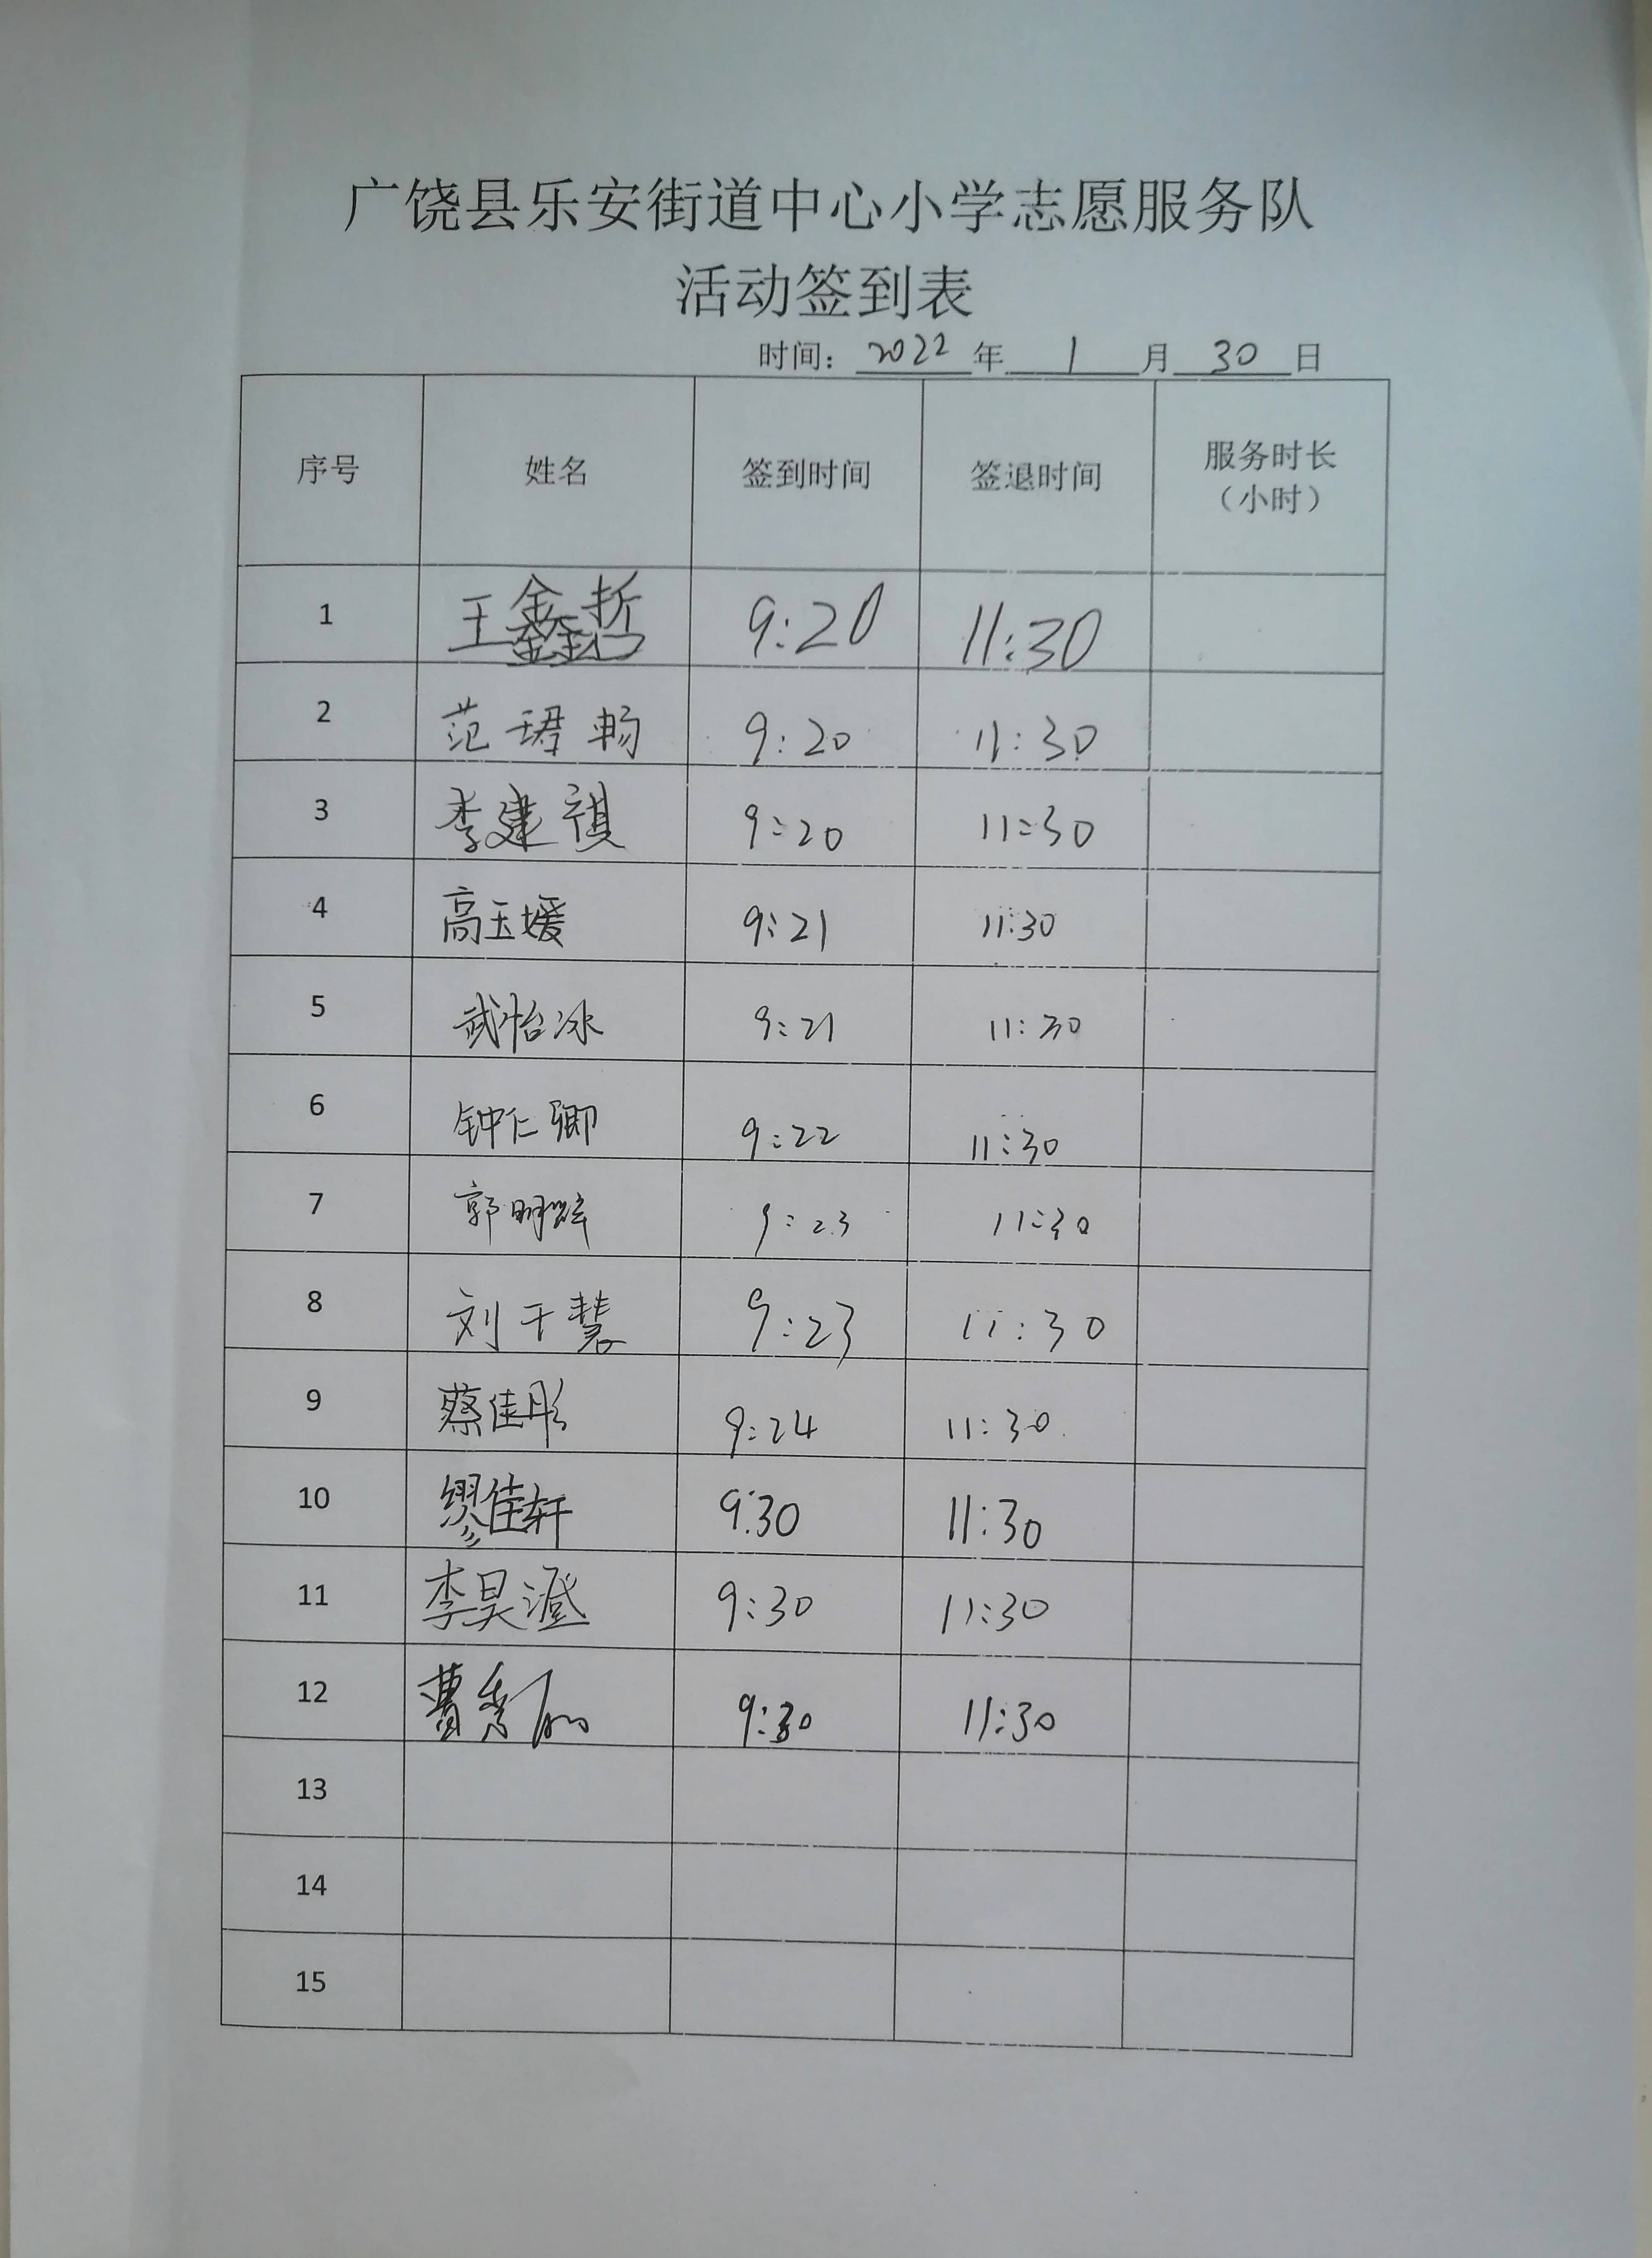 广饶县乐安街道中心小学志愿服务队
活动签到表
时间：2022年1月30日
序号 姓名 签到时间 签退时间 服务时长（小时）
1 王鑫哲 9:20 11:30
2 范珺畅 9:20 11:30
3 李建祺 9:20 11:30
4 高玉媛 9:21 11:30
5 武怡冰 9:21 11:30
6 钟仁卿 9:22 11:30
7 郭明 9:23 11:30
8 刘千慧 9:23 11:30
9 蔡佳彤 9:24 11:30
10 缪佳轩 9:30 11:30
11 李昊澄 9:30 11:30
12 曹秀 9:30 11:30
13
14
15